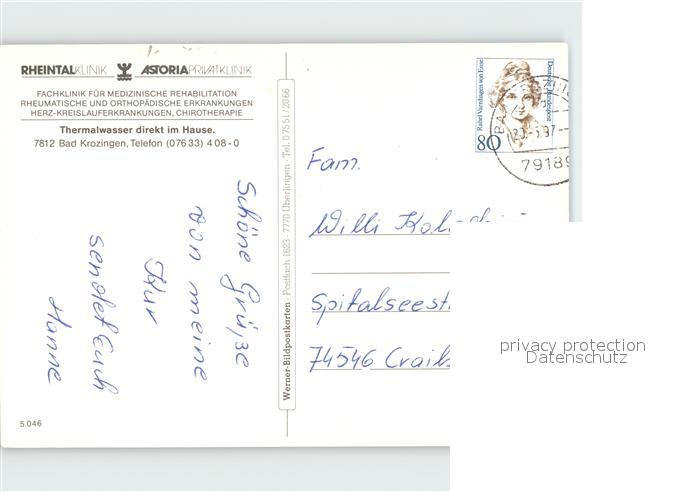 RHEINTALKLINIK ASTORIA PRIVATKLINIK
FACHKLINIK FÜR MEDIZINISCHE REHABILITATION
RHEUMATISCHE UND ORTHOPÄDISCHE ERKRANKUNGEN
HERZ-KREISLAUFERKRANKUNGEN, CHIROTHERAPIE
Thermalwasser direkt im Hause.
7812 Bad Krozingen, Telefon (0 76 33) 4 08 - 0
Schöne Grüße
von meine
Kur
sendet Euch
Hanne
5.046
Werner-Bildpostkarten · Postfach 1623 · 7770 Überlingen · Tel. 0 75 51 / 20 66
Rahel Varnhagen von Ense
Deutsche Bundespost
80
79189
Fam.
Willi
Spitalseest
74546 Crails
privacy protection
Datenschutz